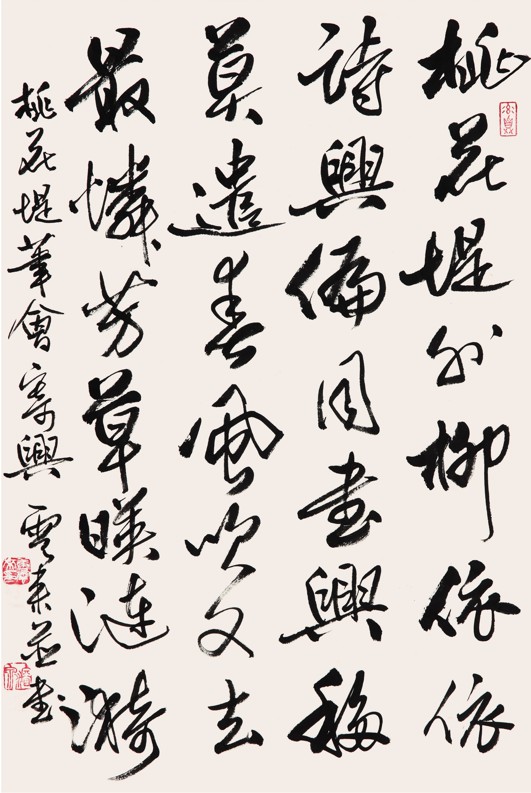 桃花堤外柳依依
詩興偏同書興移
莫遣春風吹又去
最憐芳草暎漣漪
桃花堤筆會寄興 雲來並書